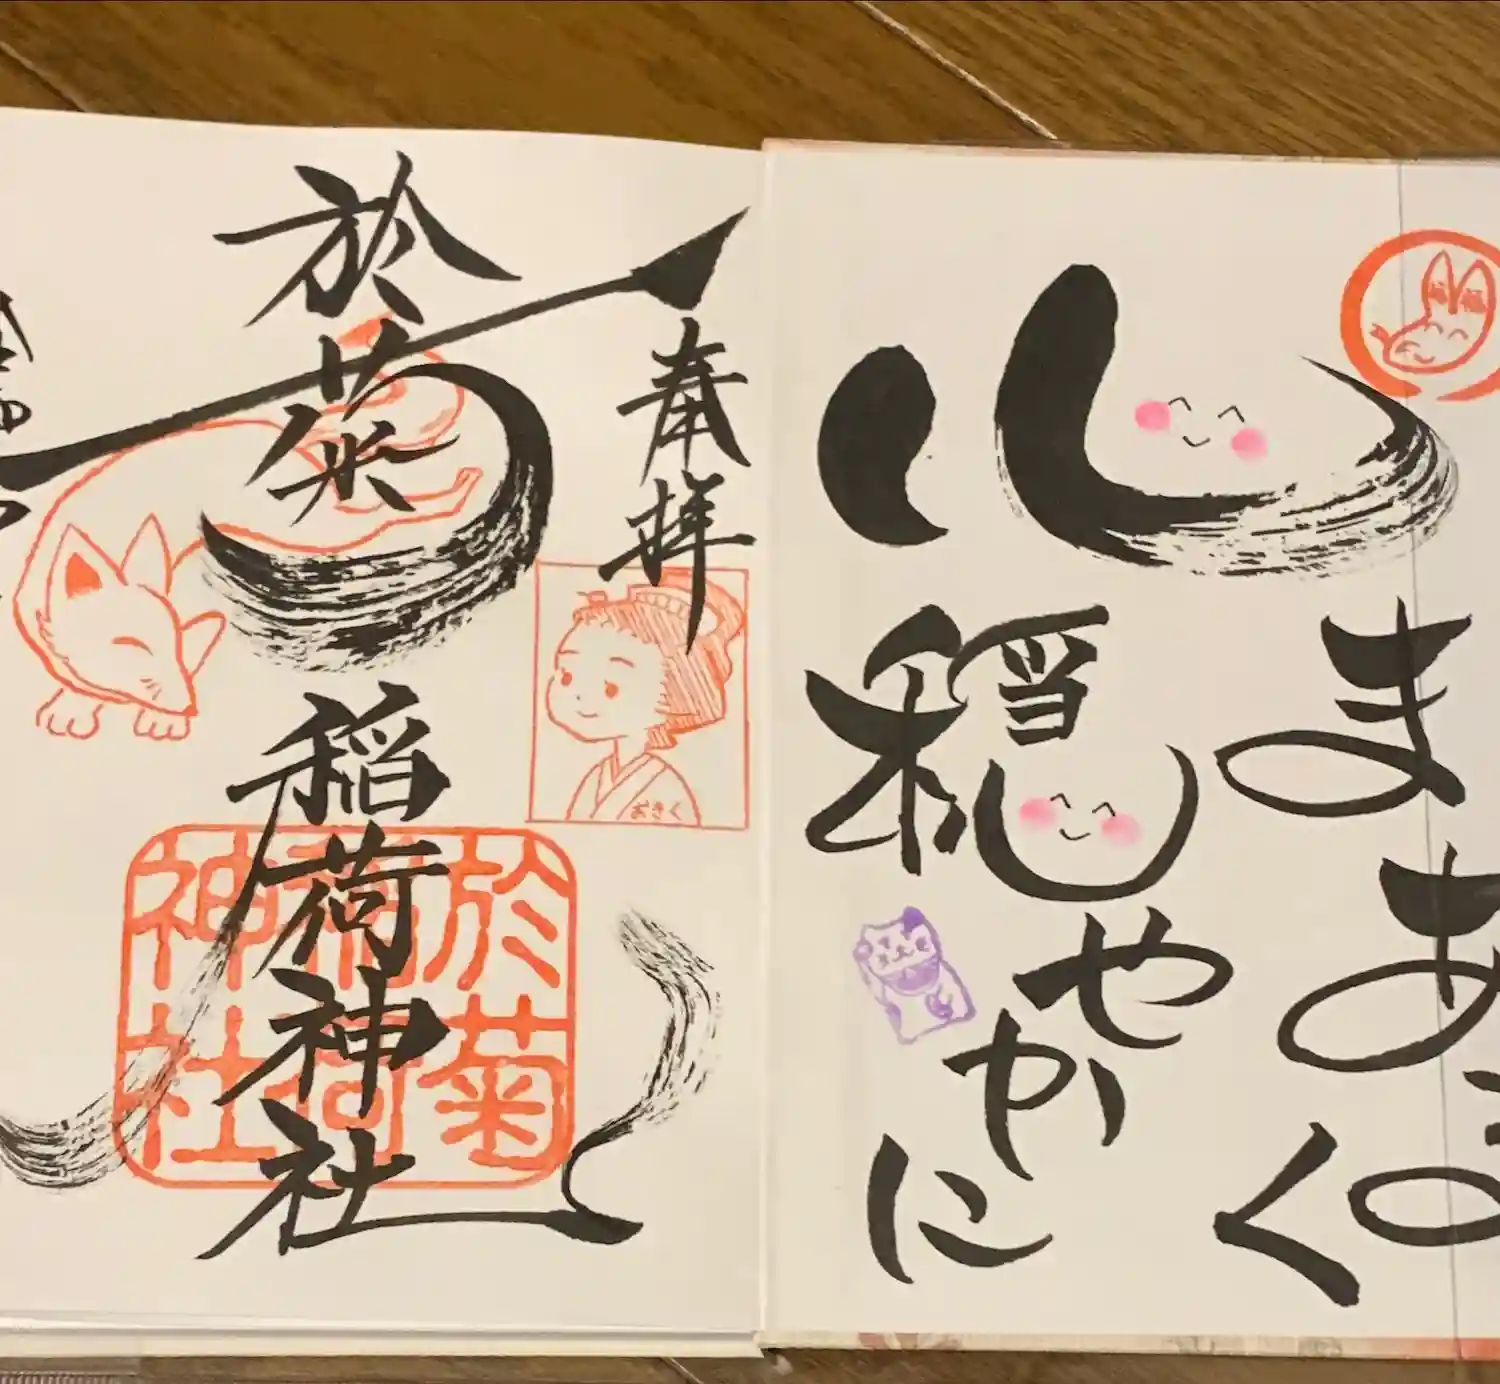 心
まあるく
穏やかに
奉拝
於菊稲荷神社
おきく
於菊
稲荷
神社